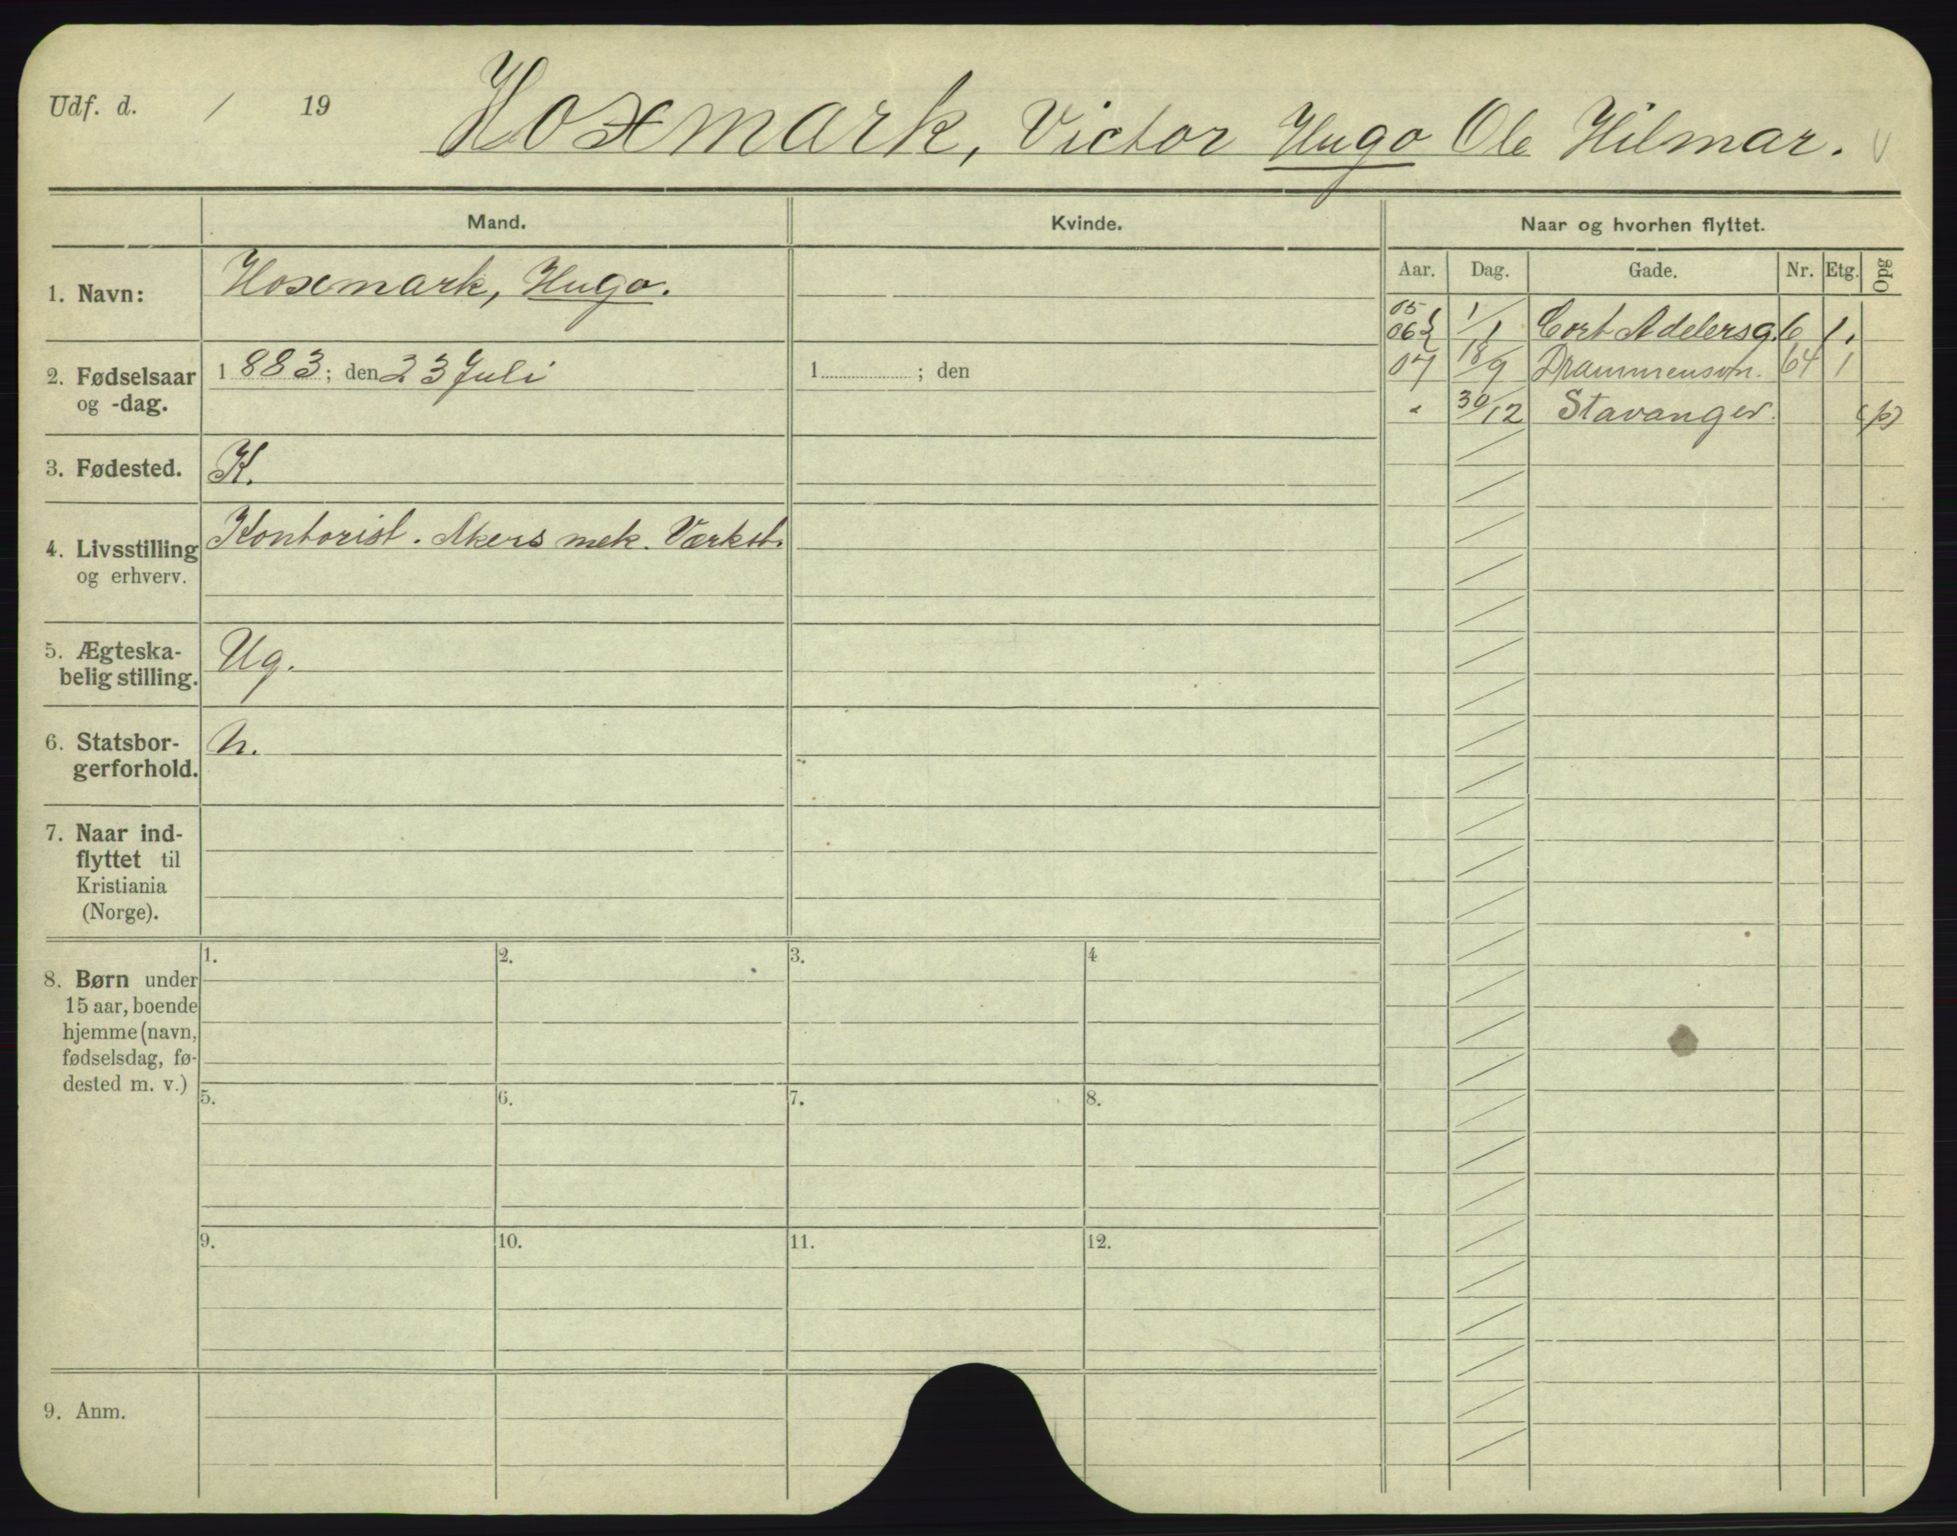 Udf. d. / 19
Hoxmark, Victor Hugo Ole Hilmar.
Mand. Kvinde. Naar og hvorhen flyttet.
Aar. Dag. Gade. Nr. Etg. Opg
1. Navn: Hoxmark, Hugo.
05
06} 1/1 Cort Adelersg. 6 1.
07 18/9 Drammensvn. 64 1
" 30/12 Stavanger. (p)
2. Fødselsaar 1883; den 23 Juli 1 ; den
og -dag.
3. Fødested. K.
4. Livsstilling Kontorist. Akers mek. Værkst.
og erhverv.
5. Ægteska-
belig stilling. Ug.
6. Statsbor-
gerforhold. n.
7. Naar ind-
flyttet til
Kristiania
(Norge).
8. Børn under
15 aar, boende
hjemme (navn,
fødselsdag, fø-
dested m. v.)
1. 2. 3. 4
5. 6. 7. 8.
9. 10. 11. 12.
9. Anm.